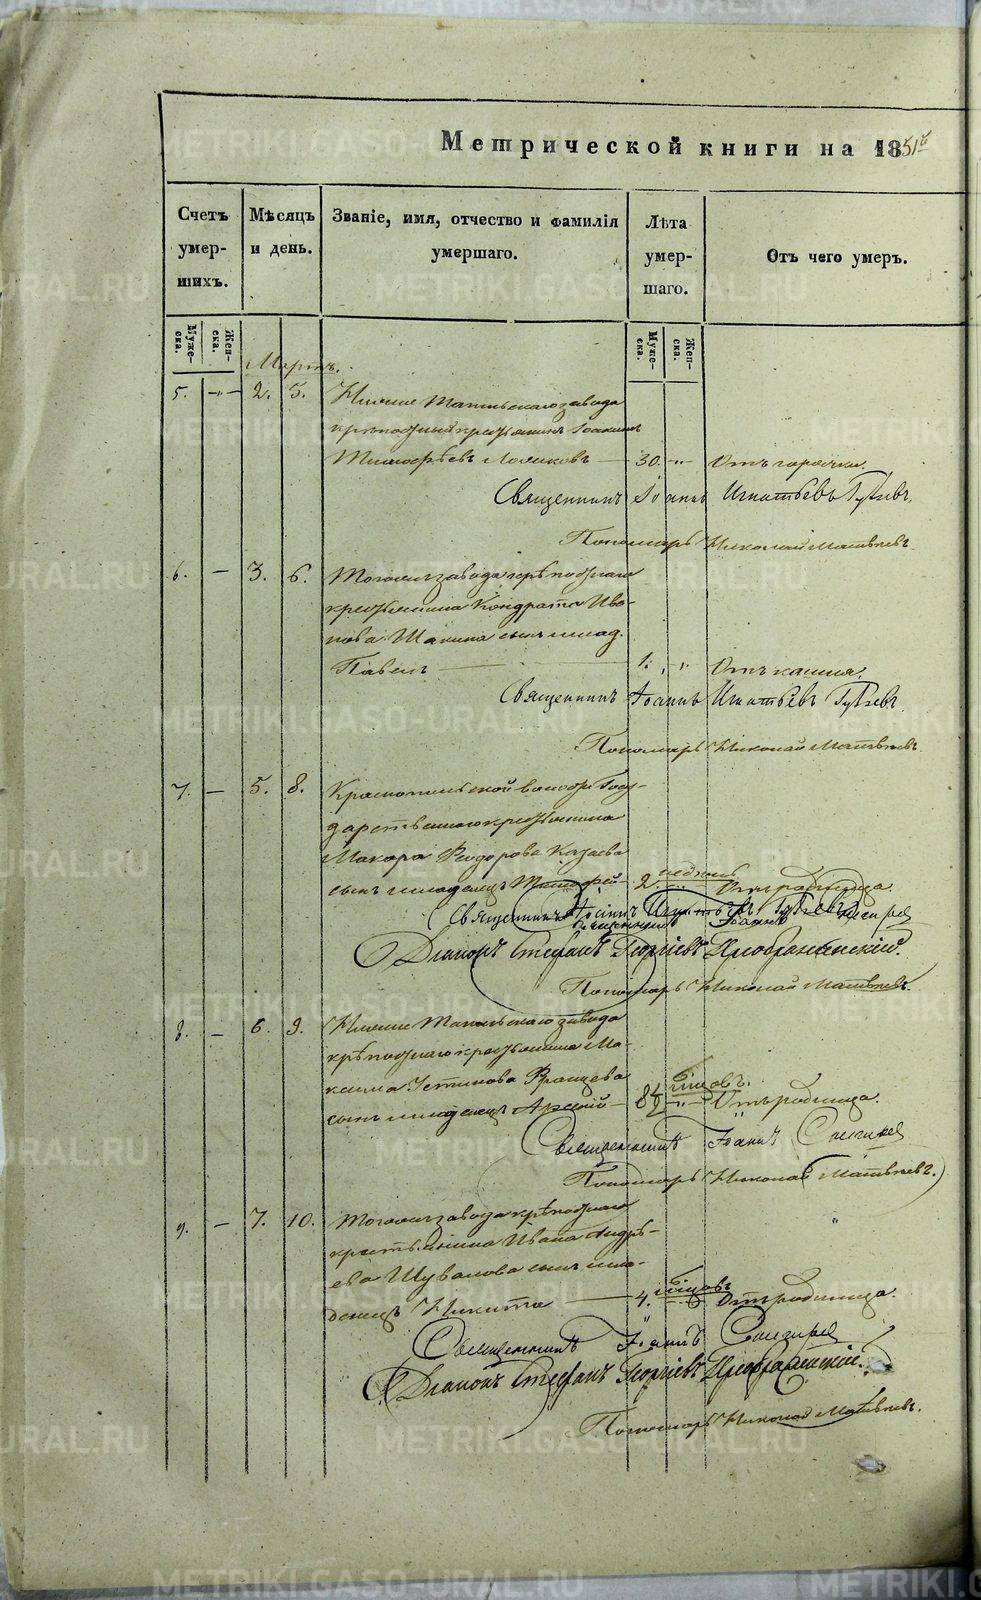 Метрической книги на 1851й
Счетъ умер- шихъ.
Мѣсяцъ и день.
Званіе, имя, отчество и фамилія умершаго.
Лѣта умер- шаго.
Отъ чего умеръ.
Муже- ска.
Жен- ска.
Муже- ска.
Жен- ска.
Мартъ.
5. —"— 2. 5. Нижне Тагильскаго завода
крѣпостный крестьянинъ Іоакимъ
Тимофѣевъ — 30. " Отъ горячки.
Священникъ Іоаннъ Игнатьевъ
Пономарь Николай Матвѣевъ
6. — 3. 6. Тогоже завода крѣпостнаго
крестьянина Кондрата Ива-
нова Шанина сынъ млад.
Павелъ — 1. " Отъ кашля.
Священникъ Іоаннъ Игнатьевъ
Пономарь Николай Матвѣевъ
7. — 5. 8. Краснопольской волости Госу-
дарственнаго крестьянина
Макара Феодорова Казаева
сынъ младенецъ Тимофей — 2. недѣль " Отъ родимца.
Священникъ Іоаннъ Игнатьевъ
Священникъ Іоаннъ
Діаконъ Стефанъ Георгіевъ Преображенскій.
Пономарь Николай Матвѣевъ.
8. — 6. 9. Нижне Тагильскаго завода
крѣпостнаго крестьянина Ма-
ксима Устинова
сынъ младенецъ Арсеній — 8½ " Отъ родимца.
Священникъ Іоаннъ
Пономарь Николай Матвѣевъ.
9. — 7. 10. Тогоже завода крѣпостнаго
крестьянина Ивана Андрѣ-
ева Шувалова сынъ мла-
денецъ Никита — 4. " Отъ родимца.
Священникъ Іоаннъ
Діаконъ Стефанъ Георгіевъ Преображенскій.
Пономарь Николай Матвѣевъ.
METRIKI.GASO-URAL.RU